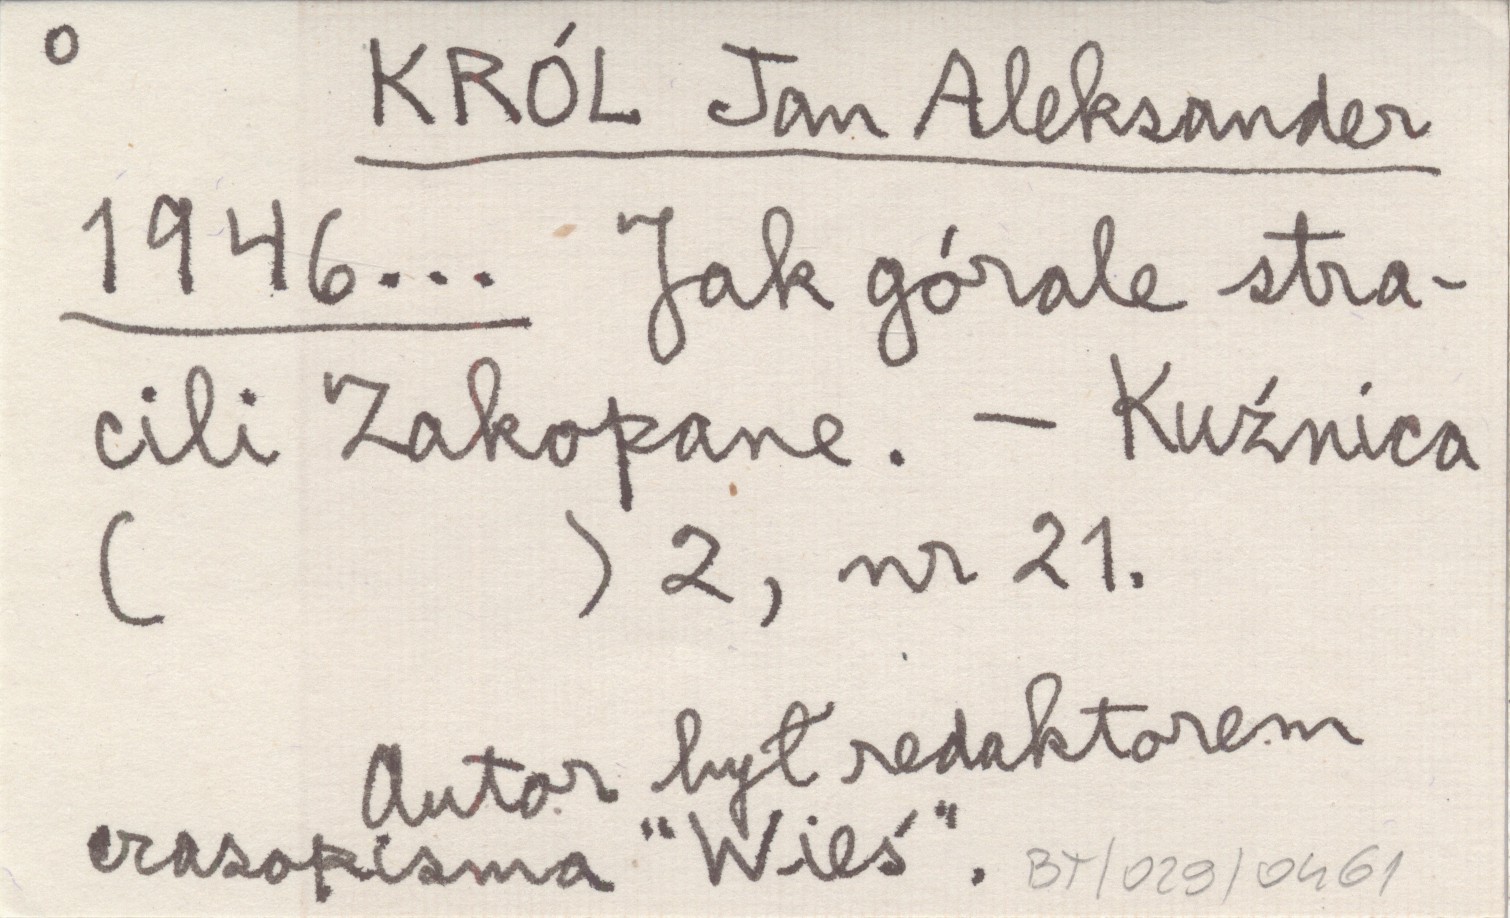 o KRÓL Jan Aleksander
1946... Jak górale stra-
cili Zakopane. – Kuźnica
( ) 2, nr 21.
Autor był redaktorem
czasopisma "Wieś".
BT/029/0461